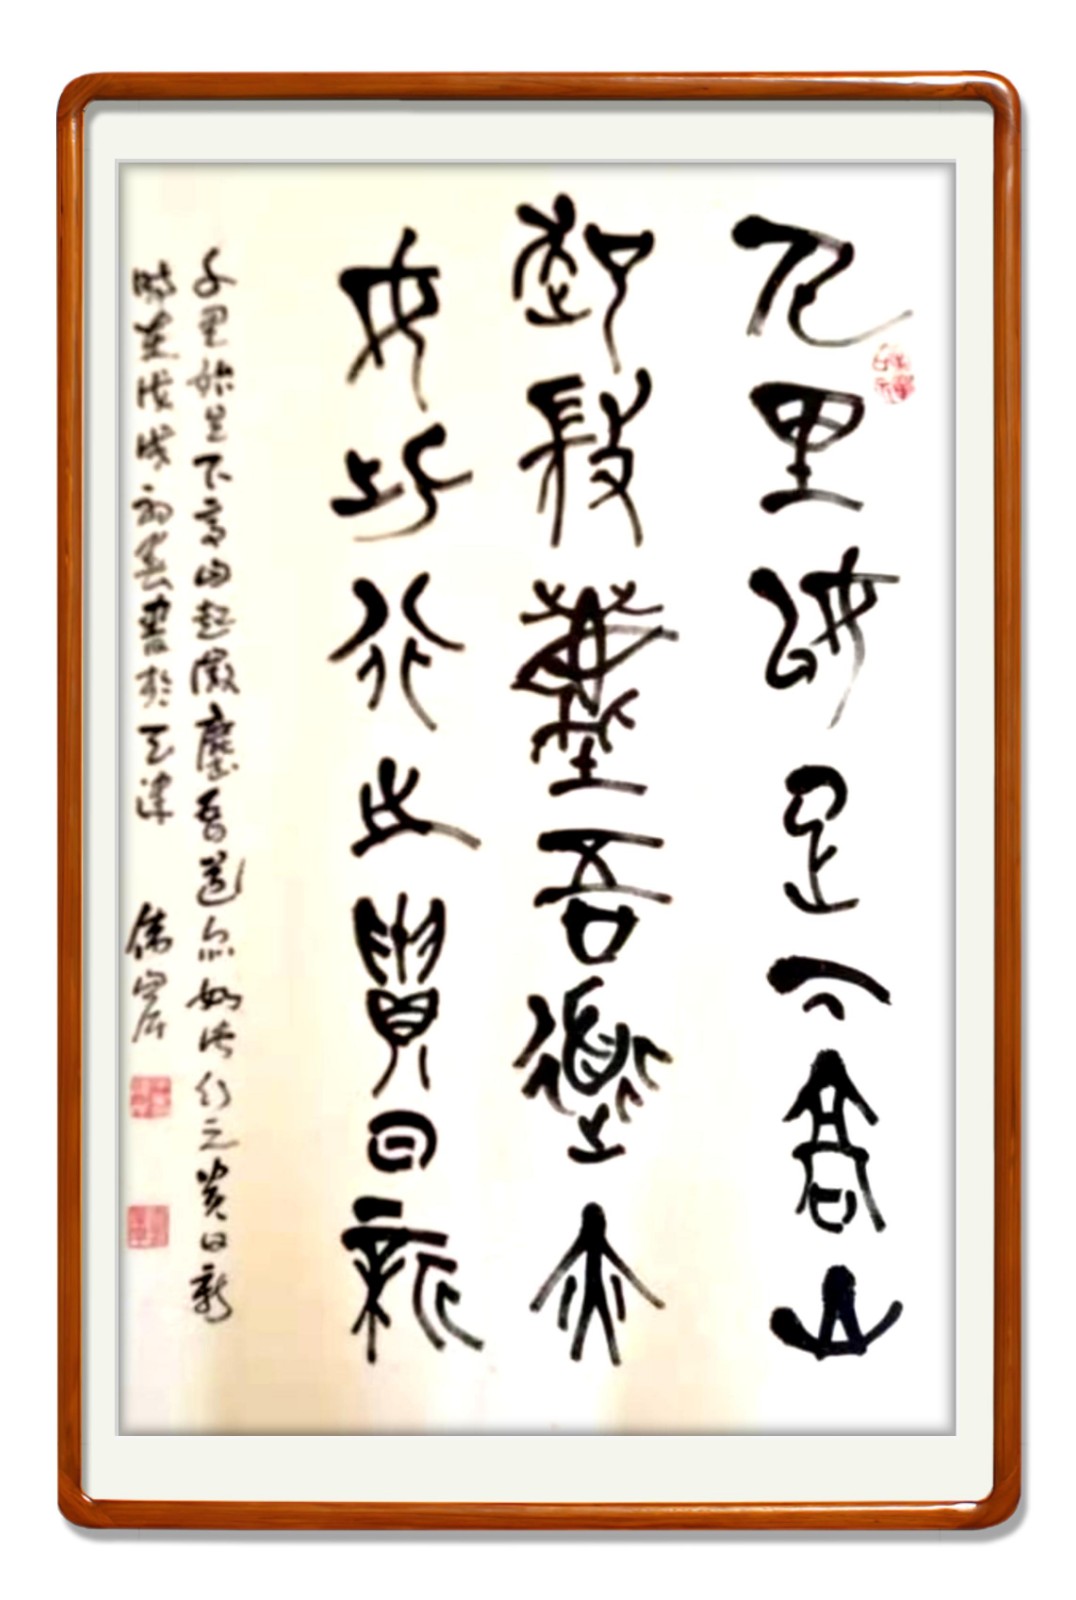 千里始足下高山
起微塵吾道亦
如此行之貴日新
千里始足下高山起微塵吾道亦如此行之貴日新
時在戊戌初春書於天津